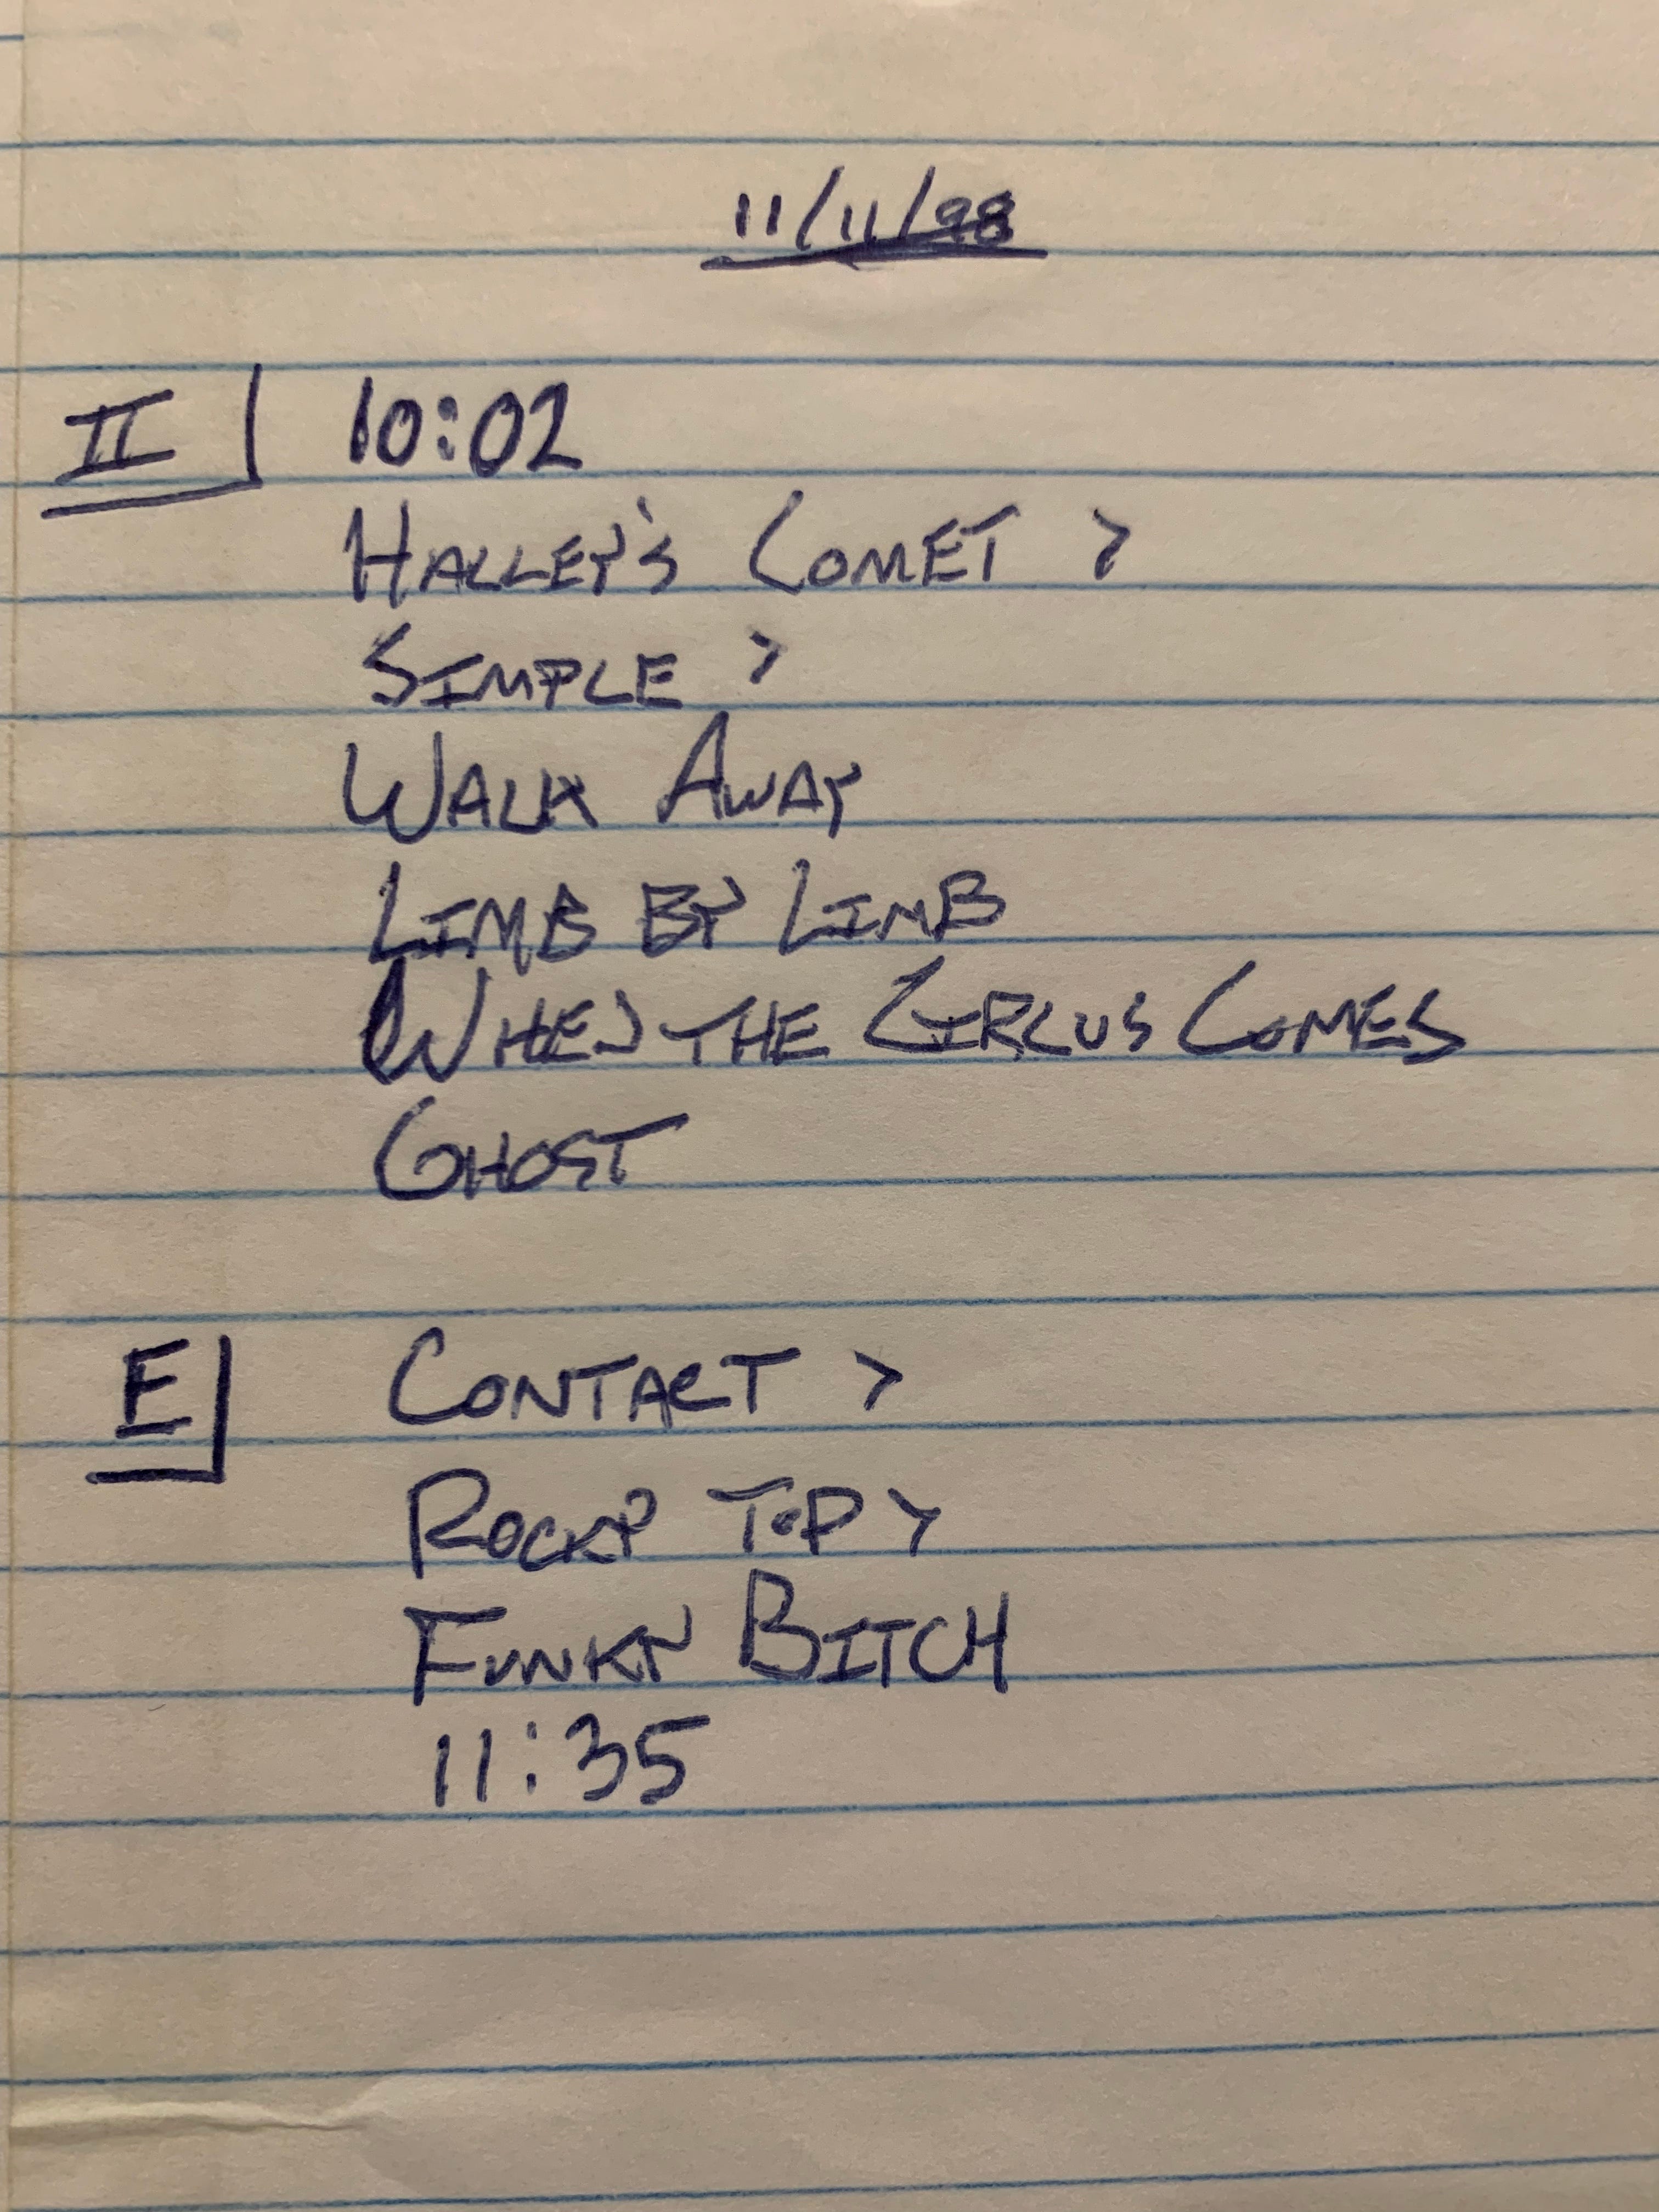 11/11/98
II 10:02
HALLEY'S COMET >
SIMPLE >
WALK AWAY
LIMB BY LIMB
WHEN THE CIRCUS COMES
GHOST
E CONTACT >
ROCKY TOP >
FUNKY BITCH
11:35